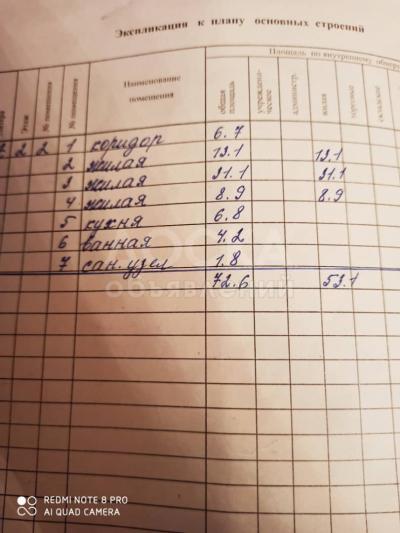 Экспликация к плану основных строений
Площадь по внутреннему обмеру
Этаж
№ помещения
№ помещения
Наименование помещения
общая площадь
учрежденческое
администр.
жилая
торговые
складские
2 2 1 коридор 6.7
2 жилая 13.1 13.1
3 жилая 31.1 31.1
4 жилая 8.9 8.9
5 кухня 6.8
6 ванная 4.2
7 сан. узел 1.8
72.6 53.1
ДОСКА
ОБЪЯВЛЕНИЙ
REDMI NOTE 8 PRO
AI QUAD CAMERA